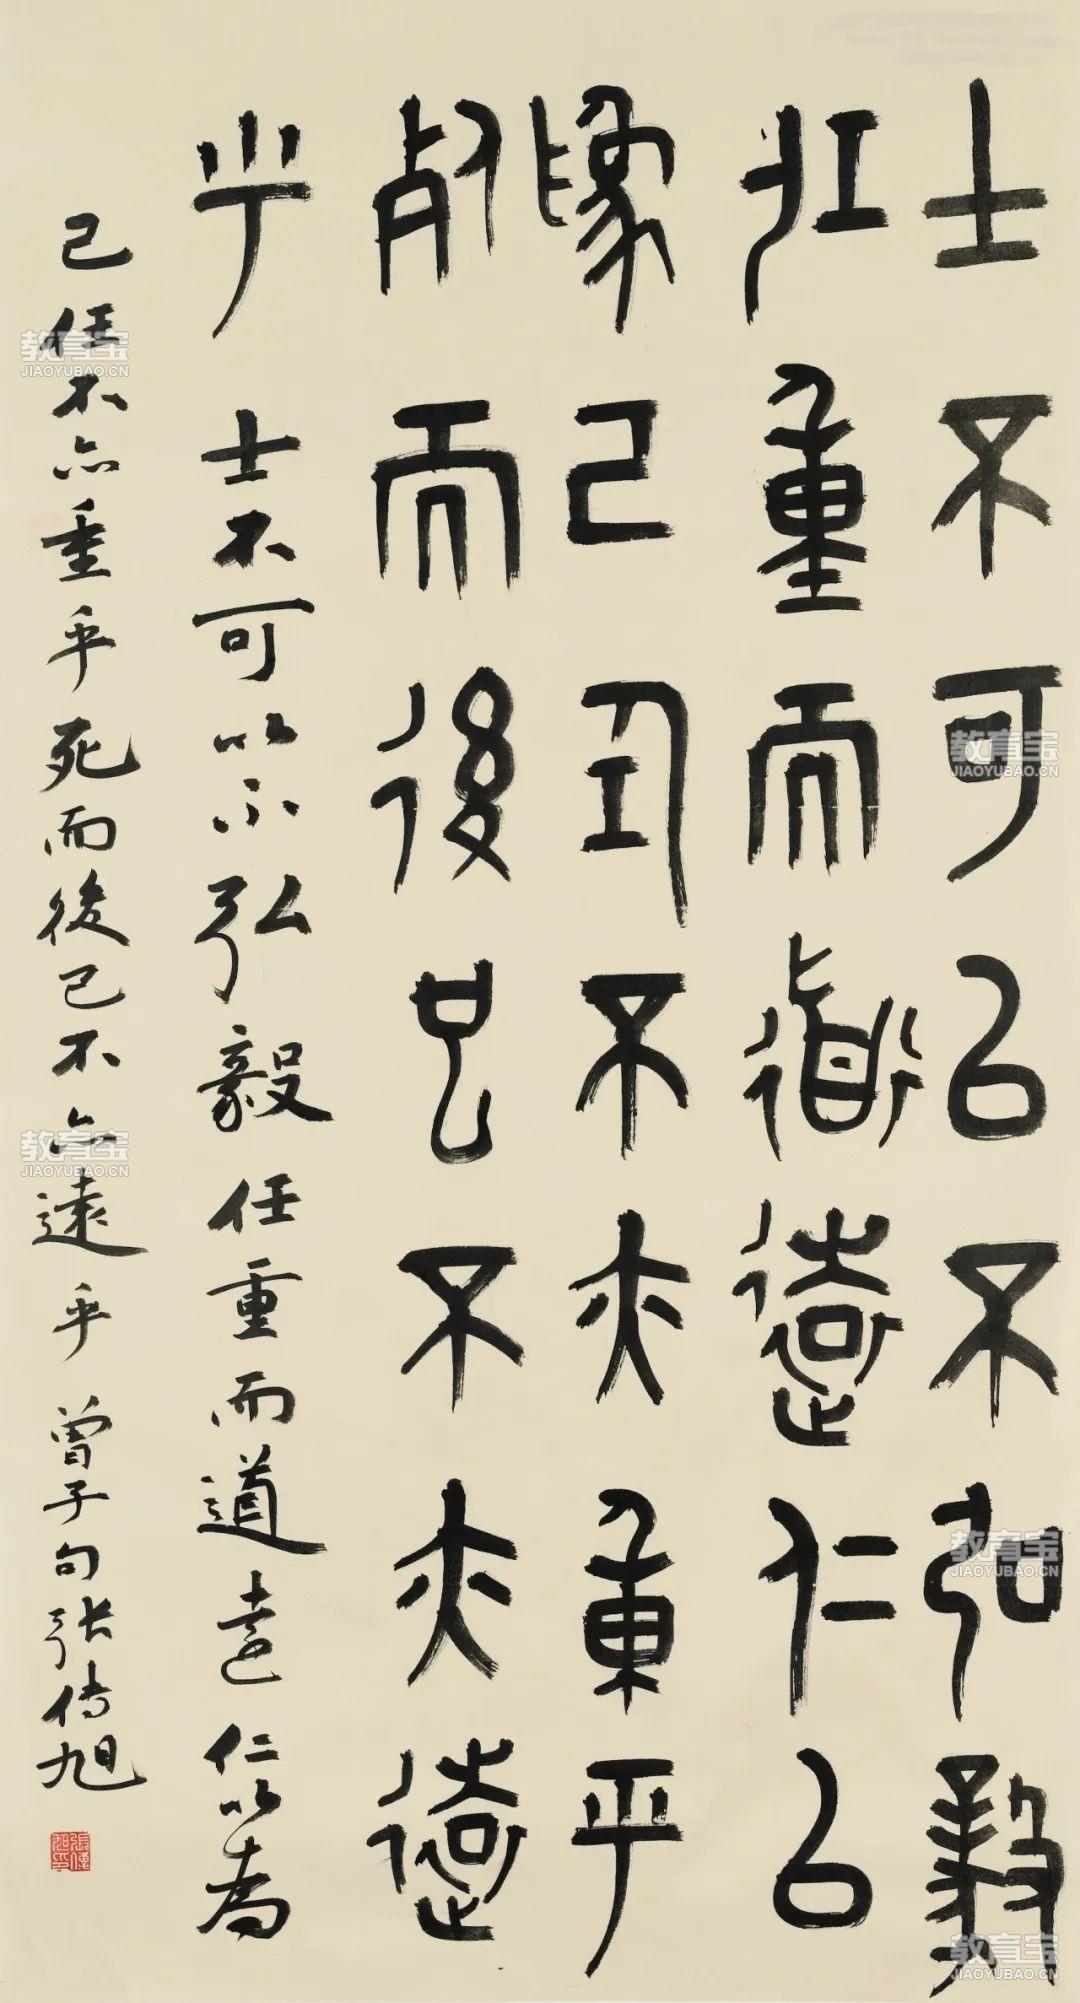 士不可以不弘毅
任重而道遠仁以
為己任不亦重乎
死而後已不亦遠
乎 士不可以不弘毅任重而道遠仁以為
己任不亦重乎死而後已不亦遠乎 曾子句張传旭
張傳旭印
教育宝
JIAOYUBAO.CN
教育宝
JIAOYUBAO.CN
教育宝
JIAOYUBAO.CN
教育宝
JIAOYUBAO.CN
教育宝
JIAOYUBAO.CN